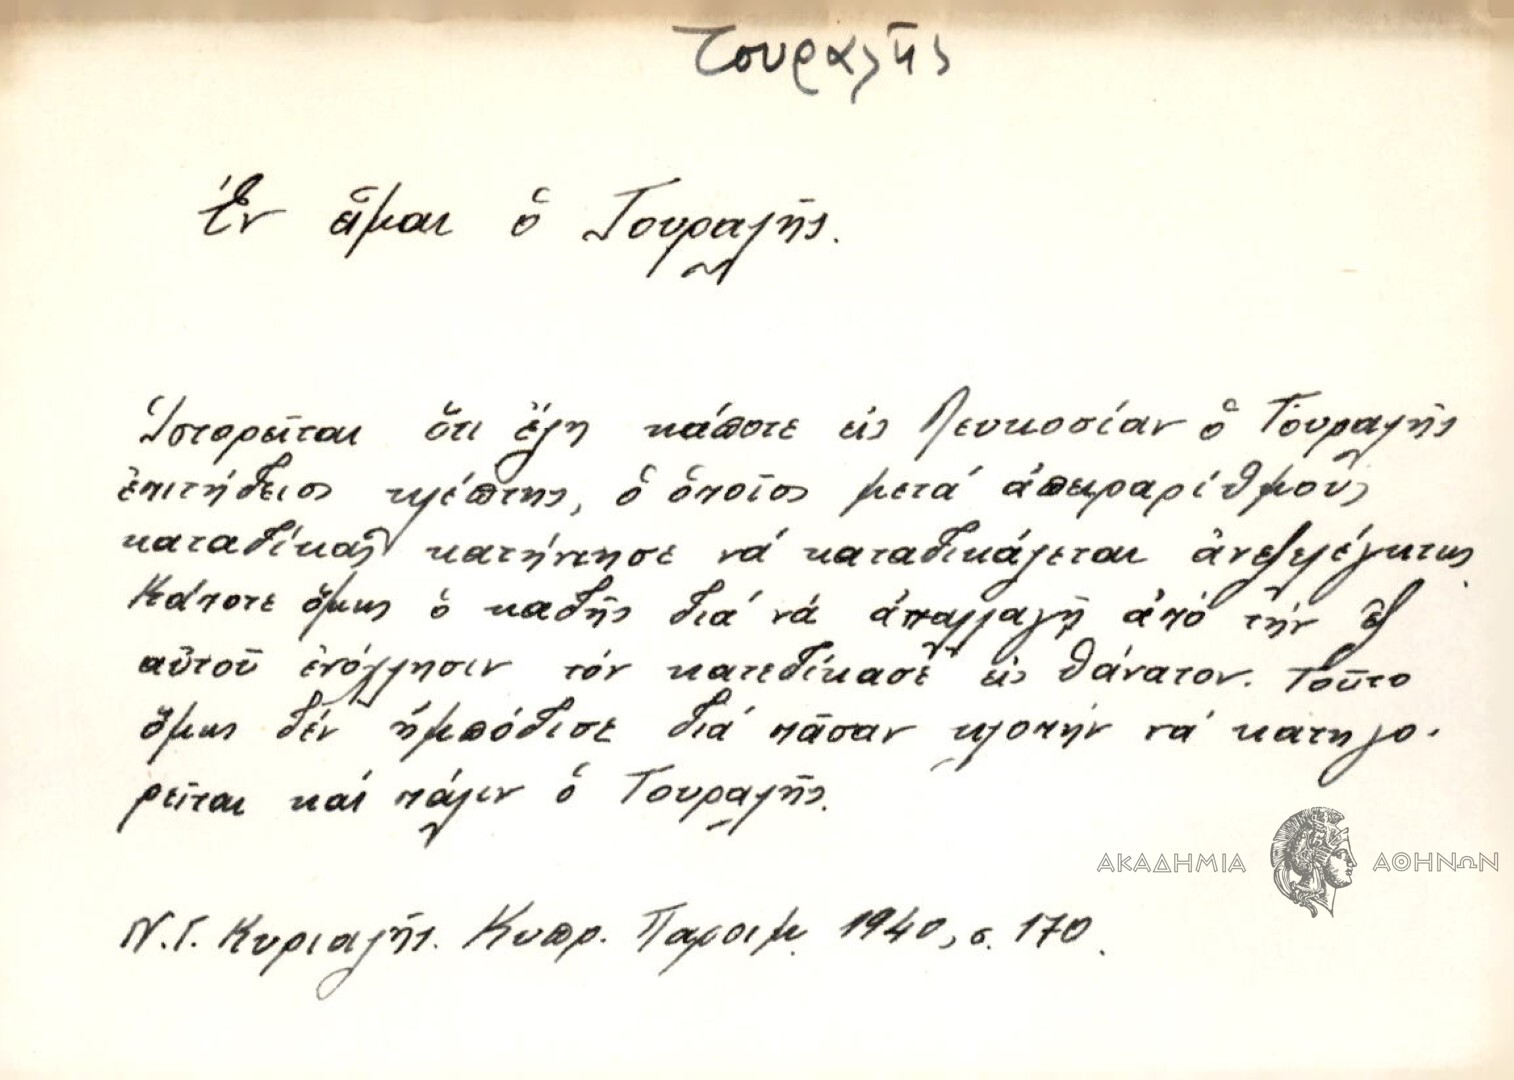 Τουραλῆς
Ἐν εἶμαι ὁ Τουραλῆς.
Ἱστορεῖται ὅτι ἔζη κάποτε εἰς Λευκοσίαν ὁ Τουραλῆς
ἐπιτήδειος κλέπτης, ὁ ὁποῖος μετά ἀπειραρίθμους
καταδίκας κατήντησε νά καταδικάζεται ἀνεξελέγκτως.
Κάποτε ὅμως ὁ καδῆς διά νά ἀπαλλαγῇ ἀπό τήν ἐξ
αὐτοῦ ἐνόχλησιν τόν κατεδίκασε εἰς θάνατον. Τοῦτο
ὅμως δέν ἠμπόδισε διά πᾶσαν κλοπήν νά κατηγο-
ρεῖται καί πάλιν ὁ Τουραλῆς.
Ν. Γ. Κυριαζῆς. Κυπρ. Παροιμ. 1940, σ. 170.
ΑΚΑΔΗΜΙΑ ΑΘΗΝΩΝ